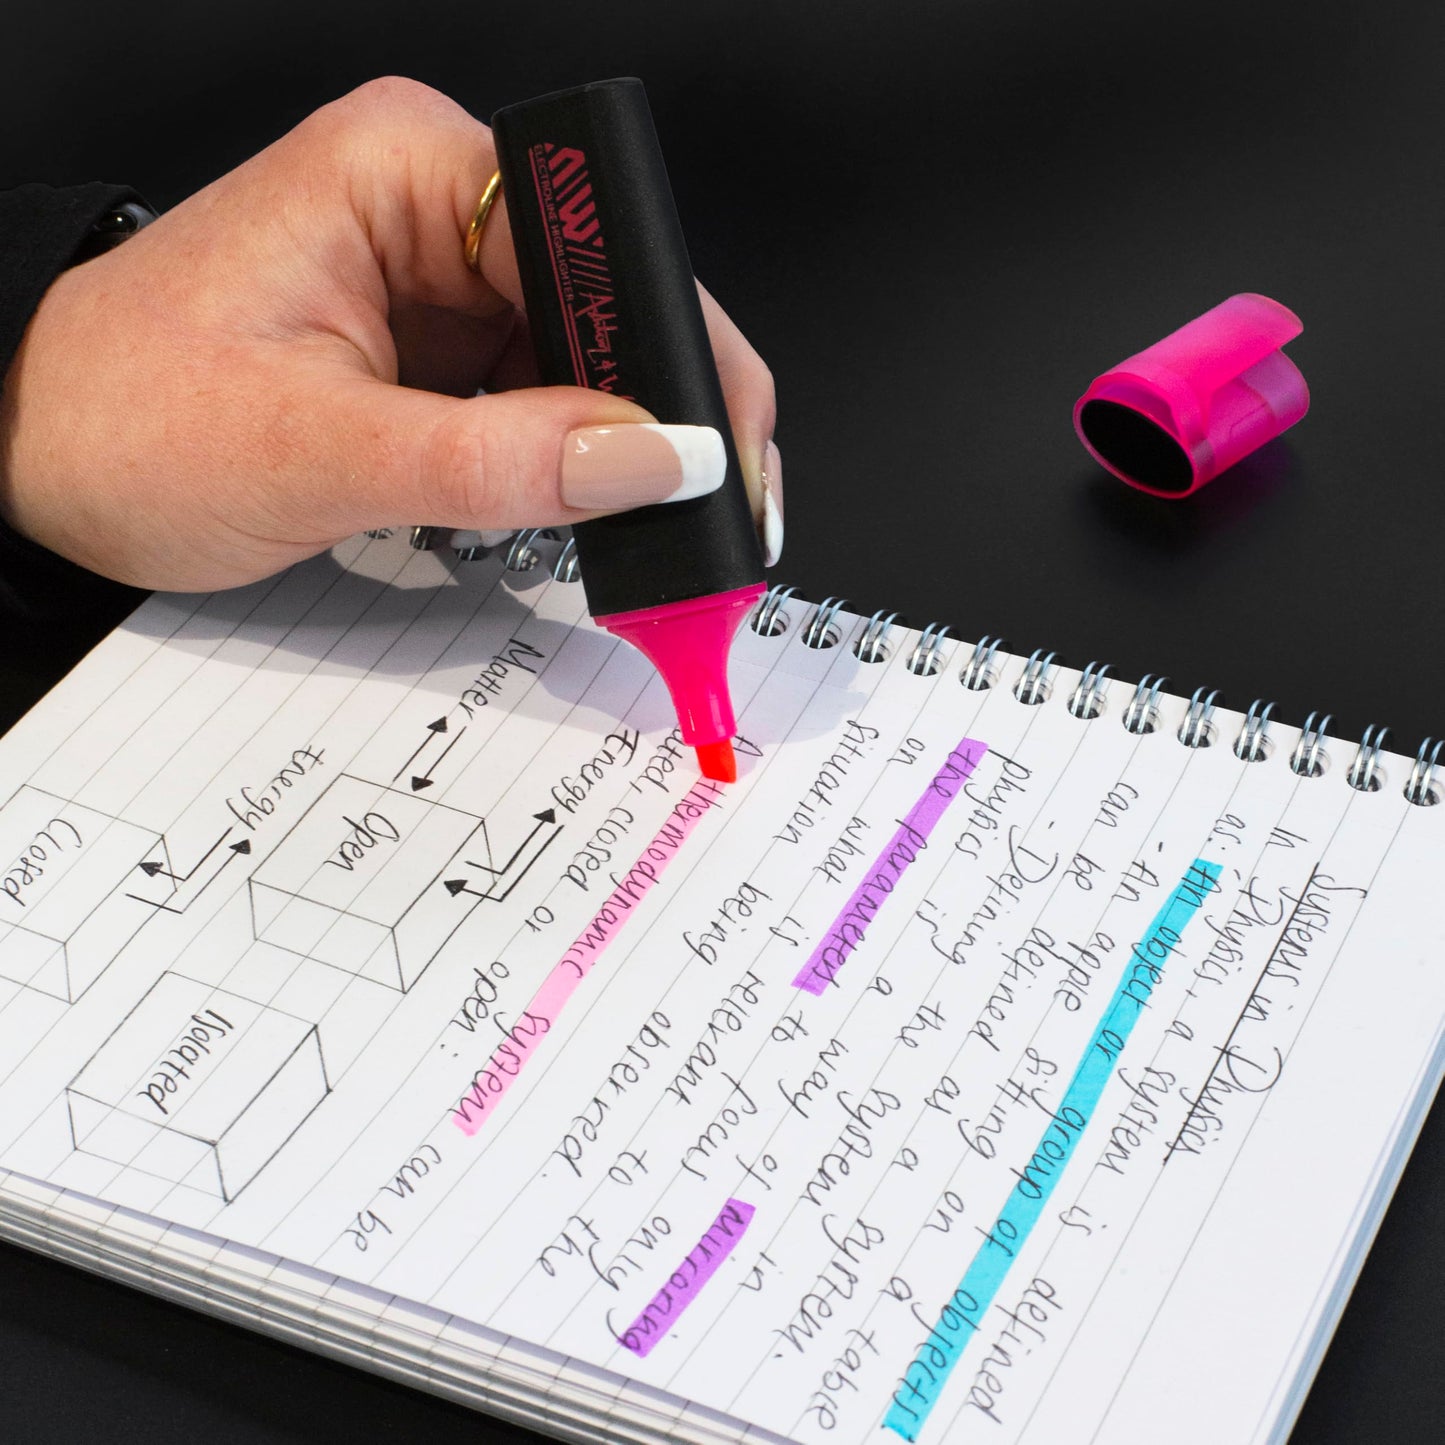 ELECTROLINE HIGHLIGHTER
Ashton + W
Systems in Physics
In Physics, a system is defined
as: "An object or group of objects"
- An apple sitting on a table
can be defined as a system.
- Defining the system in
physics is a way of Mirroring
the parameters to focus only
on what is relevant to the
situation being observed.
A thermodynamic system can be
lated, closed or open:
Energy
Matter
Open
Energy
Closed
Isolated